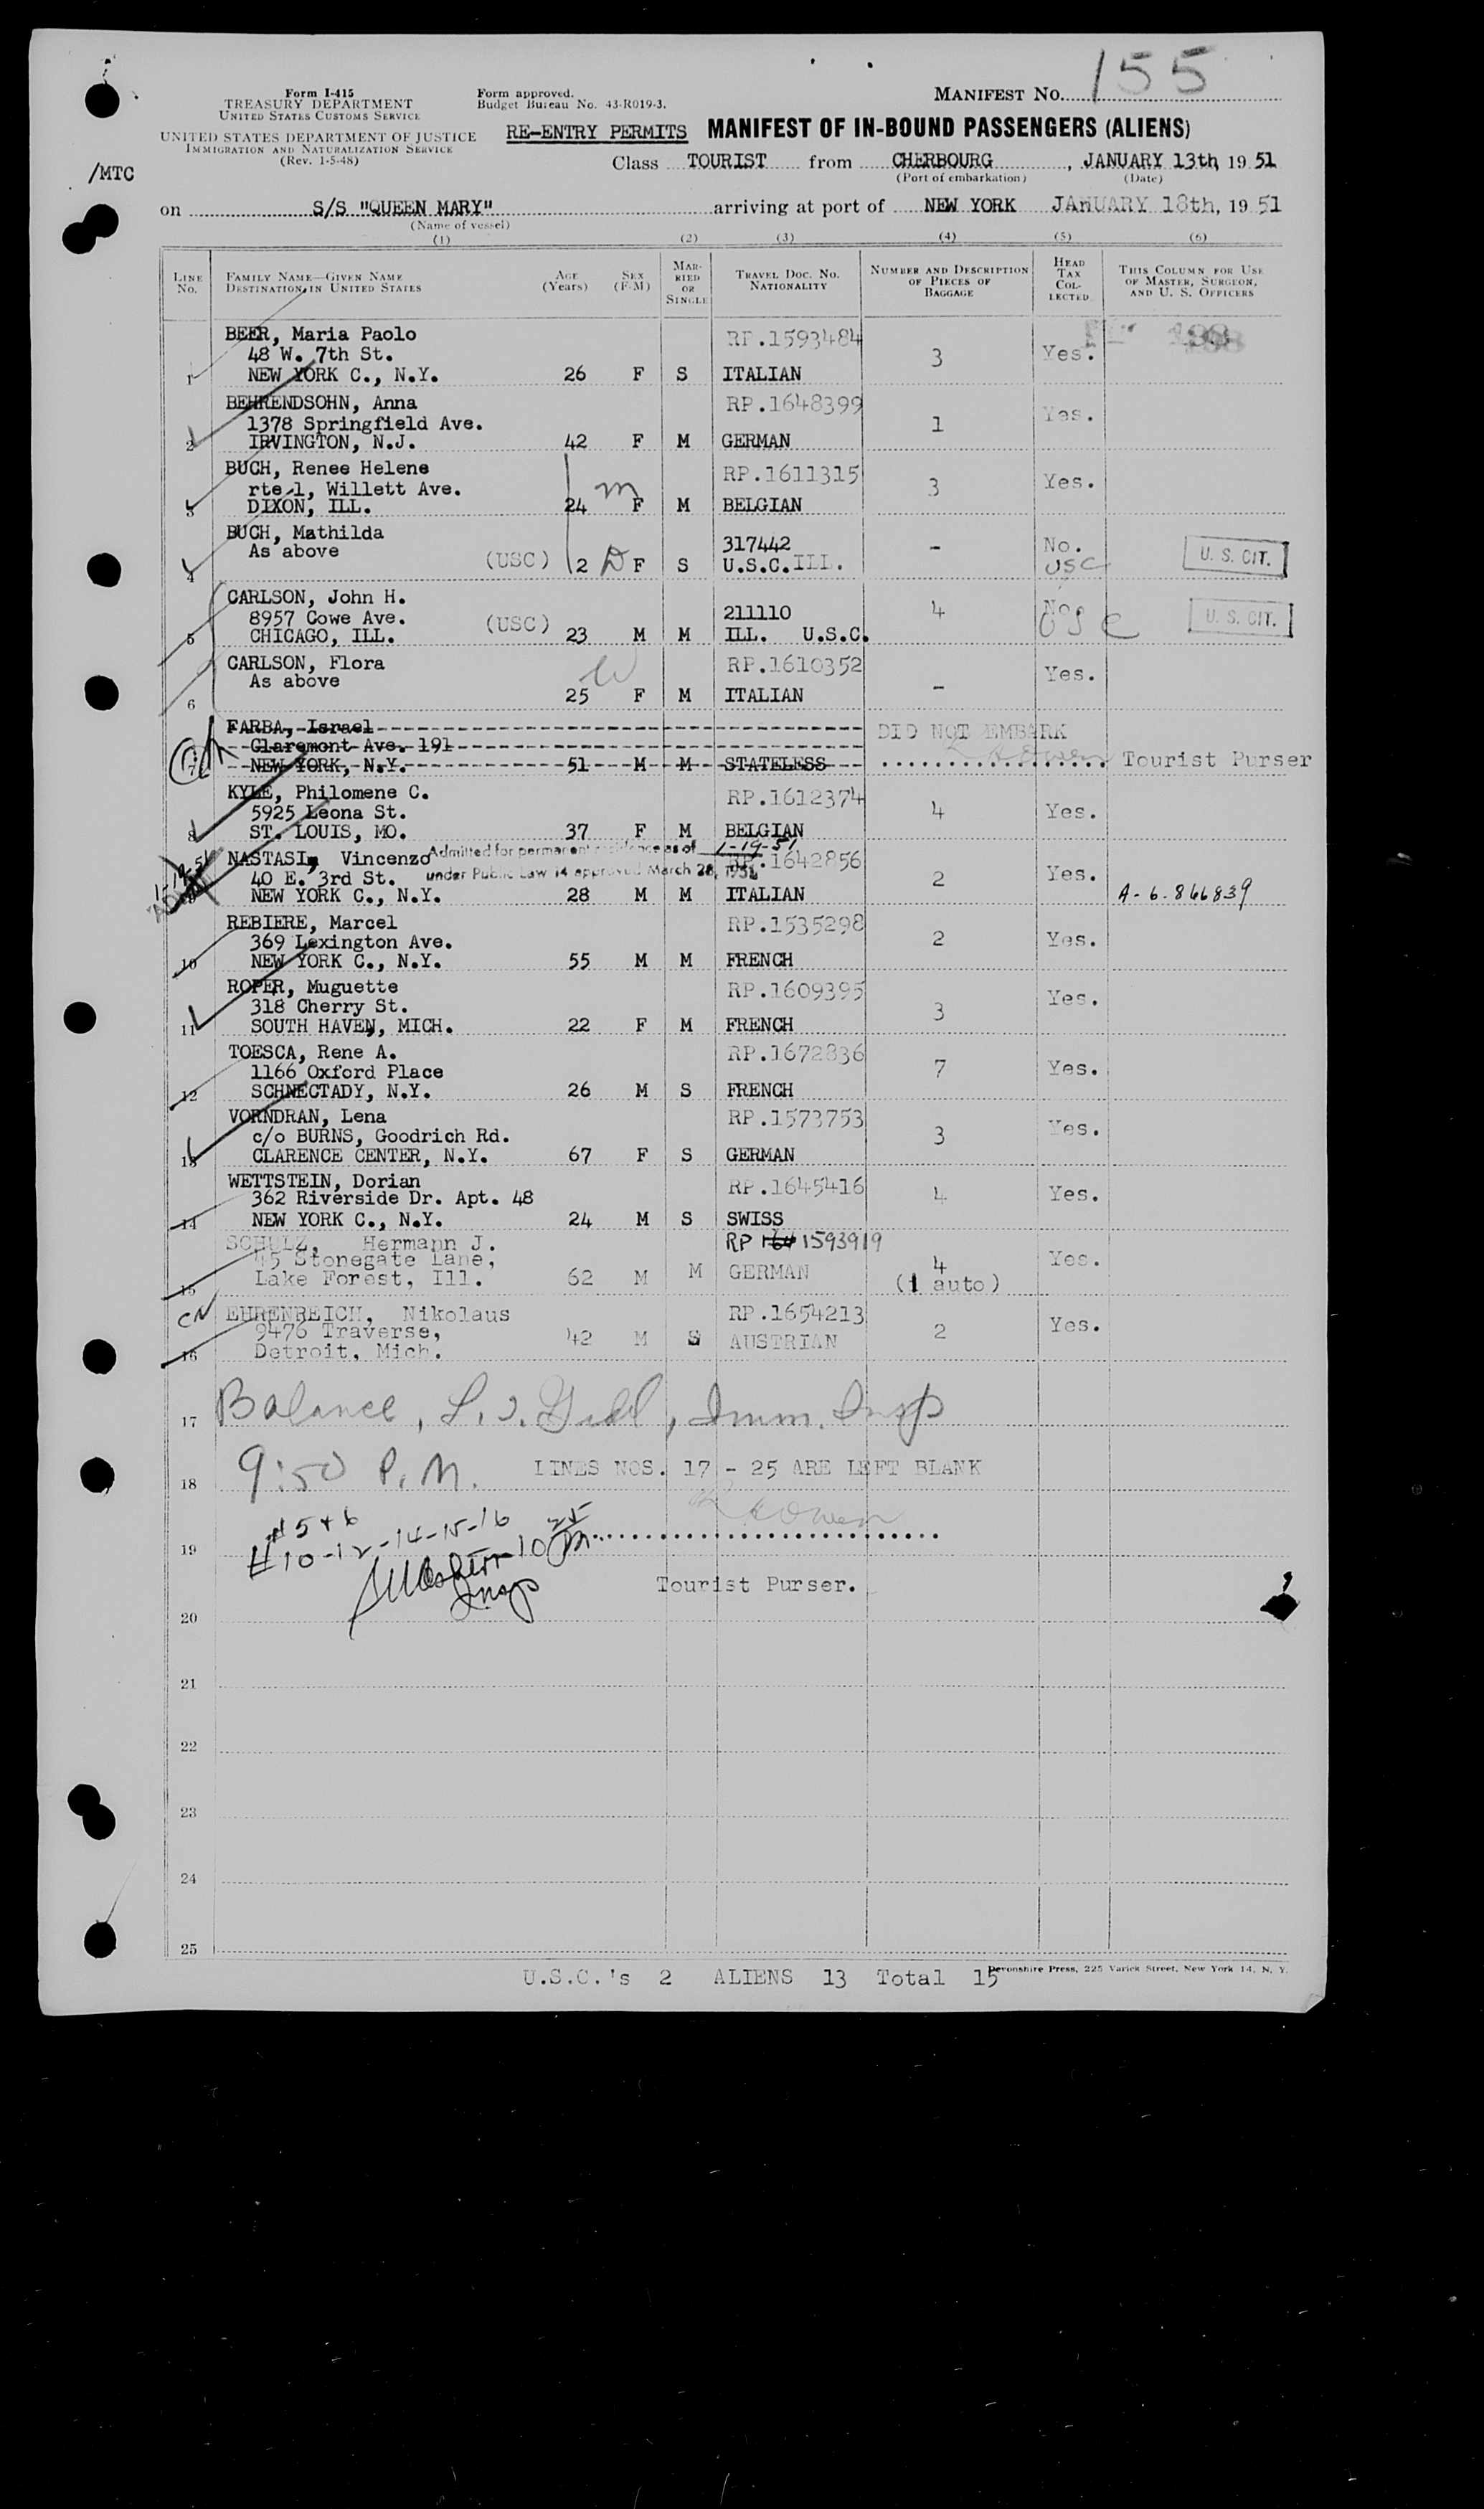 155
Form I-415
TREASURY DEPARTMENT
UNITED STATES CUSTOMS SERVICE
UNITED STATES DEPARTMENT OF JUSTICE
IMMIGRATION AND NATURALIZATION SERVICE
(Rev. 1-5-48)
Form approved.
Budget Bureau No. 43-R019-3.
MANIFEST No.
RE-ENTRY PERMITS MANIFEST OF IN-BOUND PASSENGERS (ALIENS)
/MTC
Class TOURIST from CHERBOURG, JANUARY 13th, 19 51
(Port of embarkation) (Date)
on S/S "QUEEN MARY" arriving at port of NEW YORK JANUARY 18th, 19 51
(Name of vessel)
(1) (2) (3) (4) (5) (6)
LINE No. FAMILY NAME—GIVEN NAME DESTINATION IN UNITED STATES AGE (Years) SEX (F-M) MARRIED OR SINGLE TRAVEL DOC. NO. NATIONALITY NUMBER AND DESCRIPTION OF PIECES OF BAGGAGE HEAD TAX COLLECTED THIS COLUMN FOR USE OF MASTER, SURGEON, AND U. S. OFFICERS
BEER, Maria Paolo RP.1593484
48 W. 7th St. 3 Yes.
1 NEW YORK C., N.Y. 26 F S ITALIAN
BEHRENDSOHN, Anna RP.1648399
1378 Springfield Ave. 1 Yes.
2 IRVINGTON, N.J. 42 F M GERMAN
BUCH, Renee Helene RP.1611315
rte 1, Willett Ave. m 3 Yes.
3 DIXON, ILL. 24 F M BELGIAN
BUCH, Mathilda 317442 - No.
As above
4 (USC) 2 D F S U.S.C. ILL. USC U. S. CIT.
CARLSON, John H. 211110 4 No.
8957 Cowe Ave. (USC) USC U. S. CIT.
5 CHICAGO, ILL. 23 M M ILL. U.S.C.
CARLSON, Flora RP.1610352 Yes.
As above W
6 25 F M ITALIAN -
FARBA, Israel DID NOT EMBARK
Claremont Ave. 191
7 NEW YORK, N.Y. 51 M M STATELESS Tourist Purser
KYLE, Philomene C. RP.1612374
5925 Leona St. 4 Yes.
8 ST. LOUIS, MO. 37 F M BELGIAN
Admitted for permanent residence as of 1-19-51
NASTASI, Vincenzo RP.1642856
under Public Law 14 approved March 28, 1951
40 E. 3rd St. 2 Yes.
9 NEW YORK C., N.Y. 28 M M ITALIAN A-6-846839
REBIERE, Marcel RP.1535298
369 Lexington Ave. 2 Yes.
10 NEW YORK C., N.Y. 55 M M FRENCH
ROPER, Muguette RP.1609395
318 Cherry St. 3 Yes.
11 SOUTH HAVEN, MICH. 22 F M FRENCH
TOESCA, Rene A. RP.1672836
1166 Oxford Place 7 Yes.
12 SCHNECTADY, N.Y. 26 M S FRENCH
VORNDRAN, Lena RP.1573753
c/o BURNS, Goodrich Rd. 3 Yes.
13 CLARENCE CENTER, N.Y. 67 F S GERMAN
WETTSTEIN, Dorian RP.1645416
362 Riverside Dr. Apt. 48 4 Yes.
14 NEW YORK C., N.Y. 24 M S SWISS
SCHULZ, Hermann J. RP 164 1593919
45 Stonegate Lane, 4 Yes.
15 Lake Forest, Ill. 62 M M GERMAN (1 auto)
EHRENREICH, Nikolaus RP.1654213
9476 Traverse, 42 M S AUSTRIAN 2 Yes.
16 Detroit, Mich.
17 Balance, Imm. Insp
18 9:50 P.M. LINES NOS. 17 - 25 ARE LEFT BLANK
#5+6
19 #10-12-14-15-16
Insp Tourist Purser.
20
21
22
23
24
25
U.S.C.'s 2 ALIENS 13 Total 15
Devonshire Press, 225 Varick Street, New York 14, N. Y.